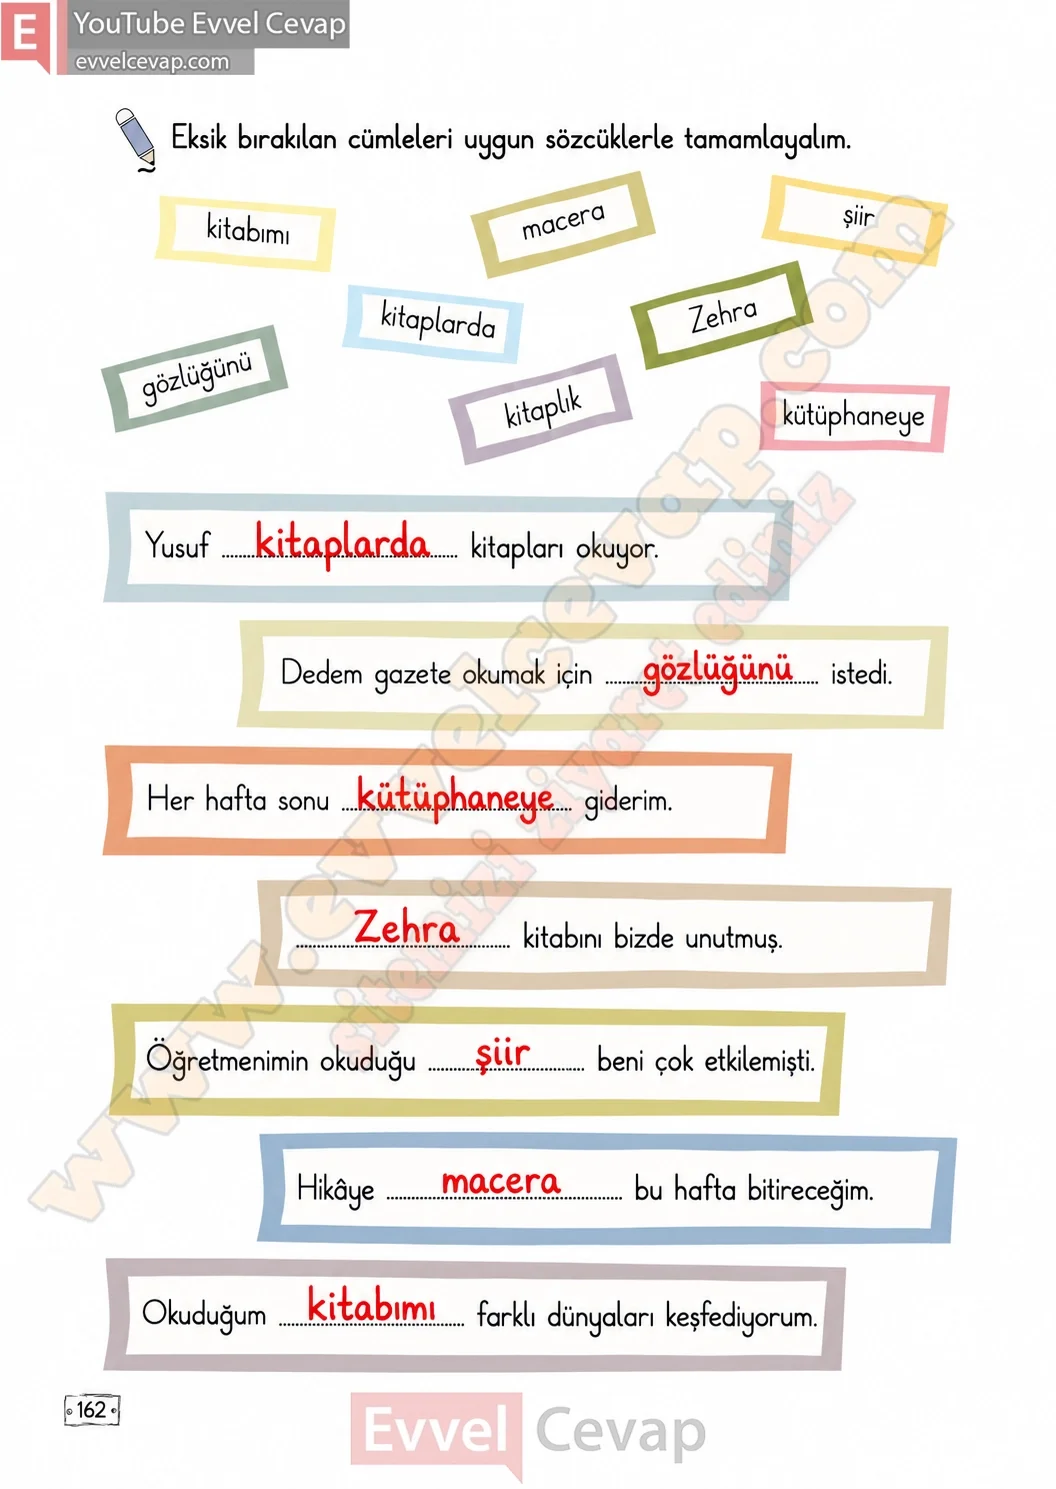 E YouTube Evvel Cevap
evvelcevap.com
Eksik bırakılan cümleleri uygun sözcüklerle tamamlayalım.
kitabımı
macera
şiir
kitaplarda
Zehra
gözlüğünü
kitaplık
kütüphaneye
Yusuf kitaplarda kitapları okuyor.
Dedem gazete okumak için gözlüğünü istedi.
Her hafta sonu kütüphaneye giderim.
Zehra kitabını bizde unutmuş.
Öğretmenimin okuduğu şiir beni çok etkilemişti.
Hikâye macera bu hafta bitireceğim.
Okuduğum kitabımı farklı dünyaları keşfediyorum.
www.evvelcevap.com
sitemizi ziyaret ediniz
162
Evvel Cevap